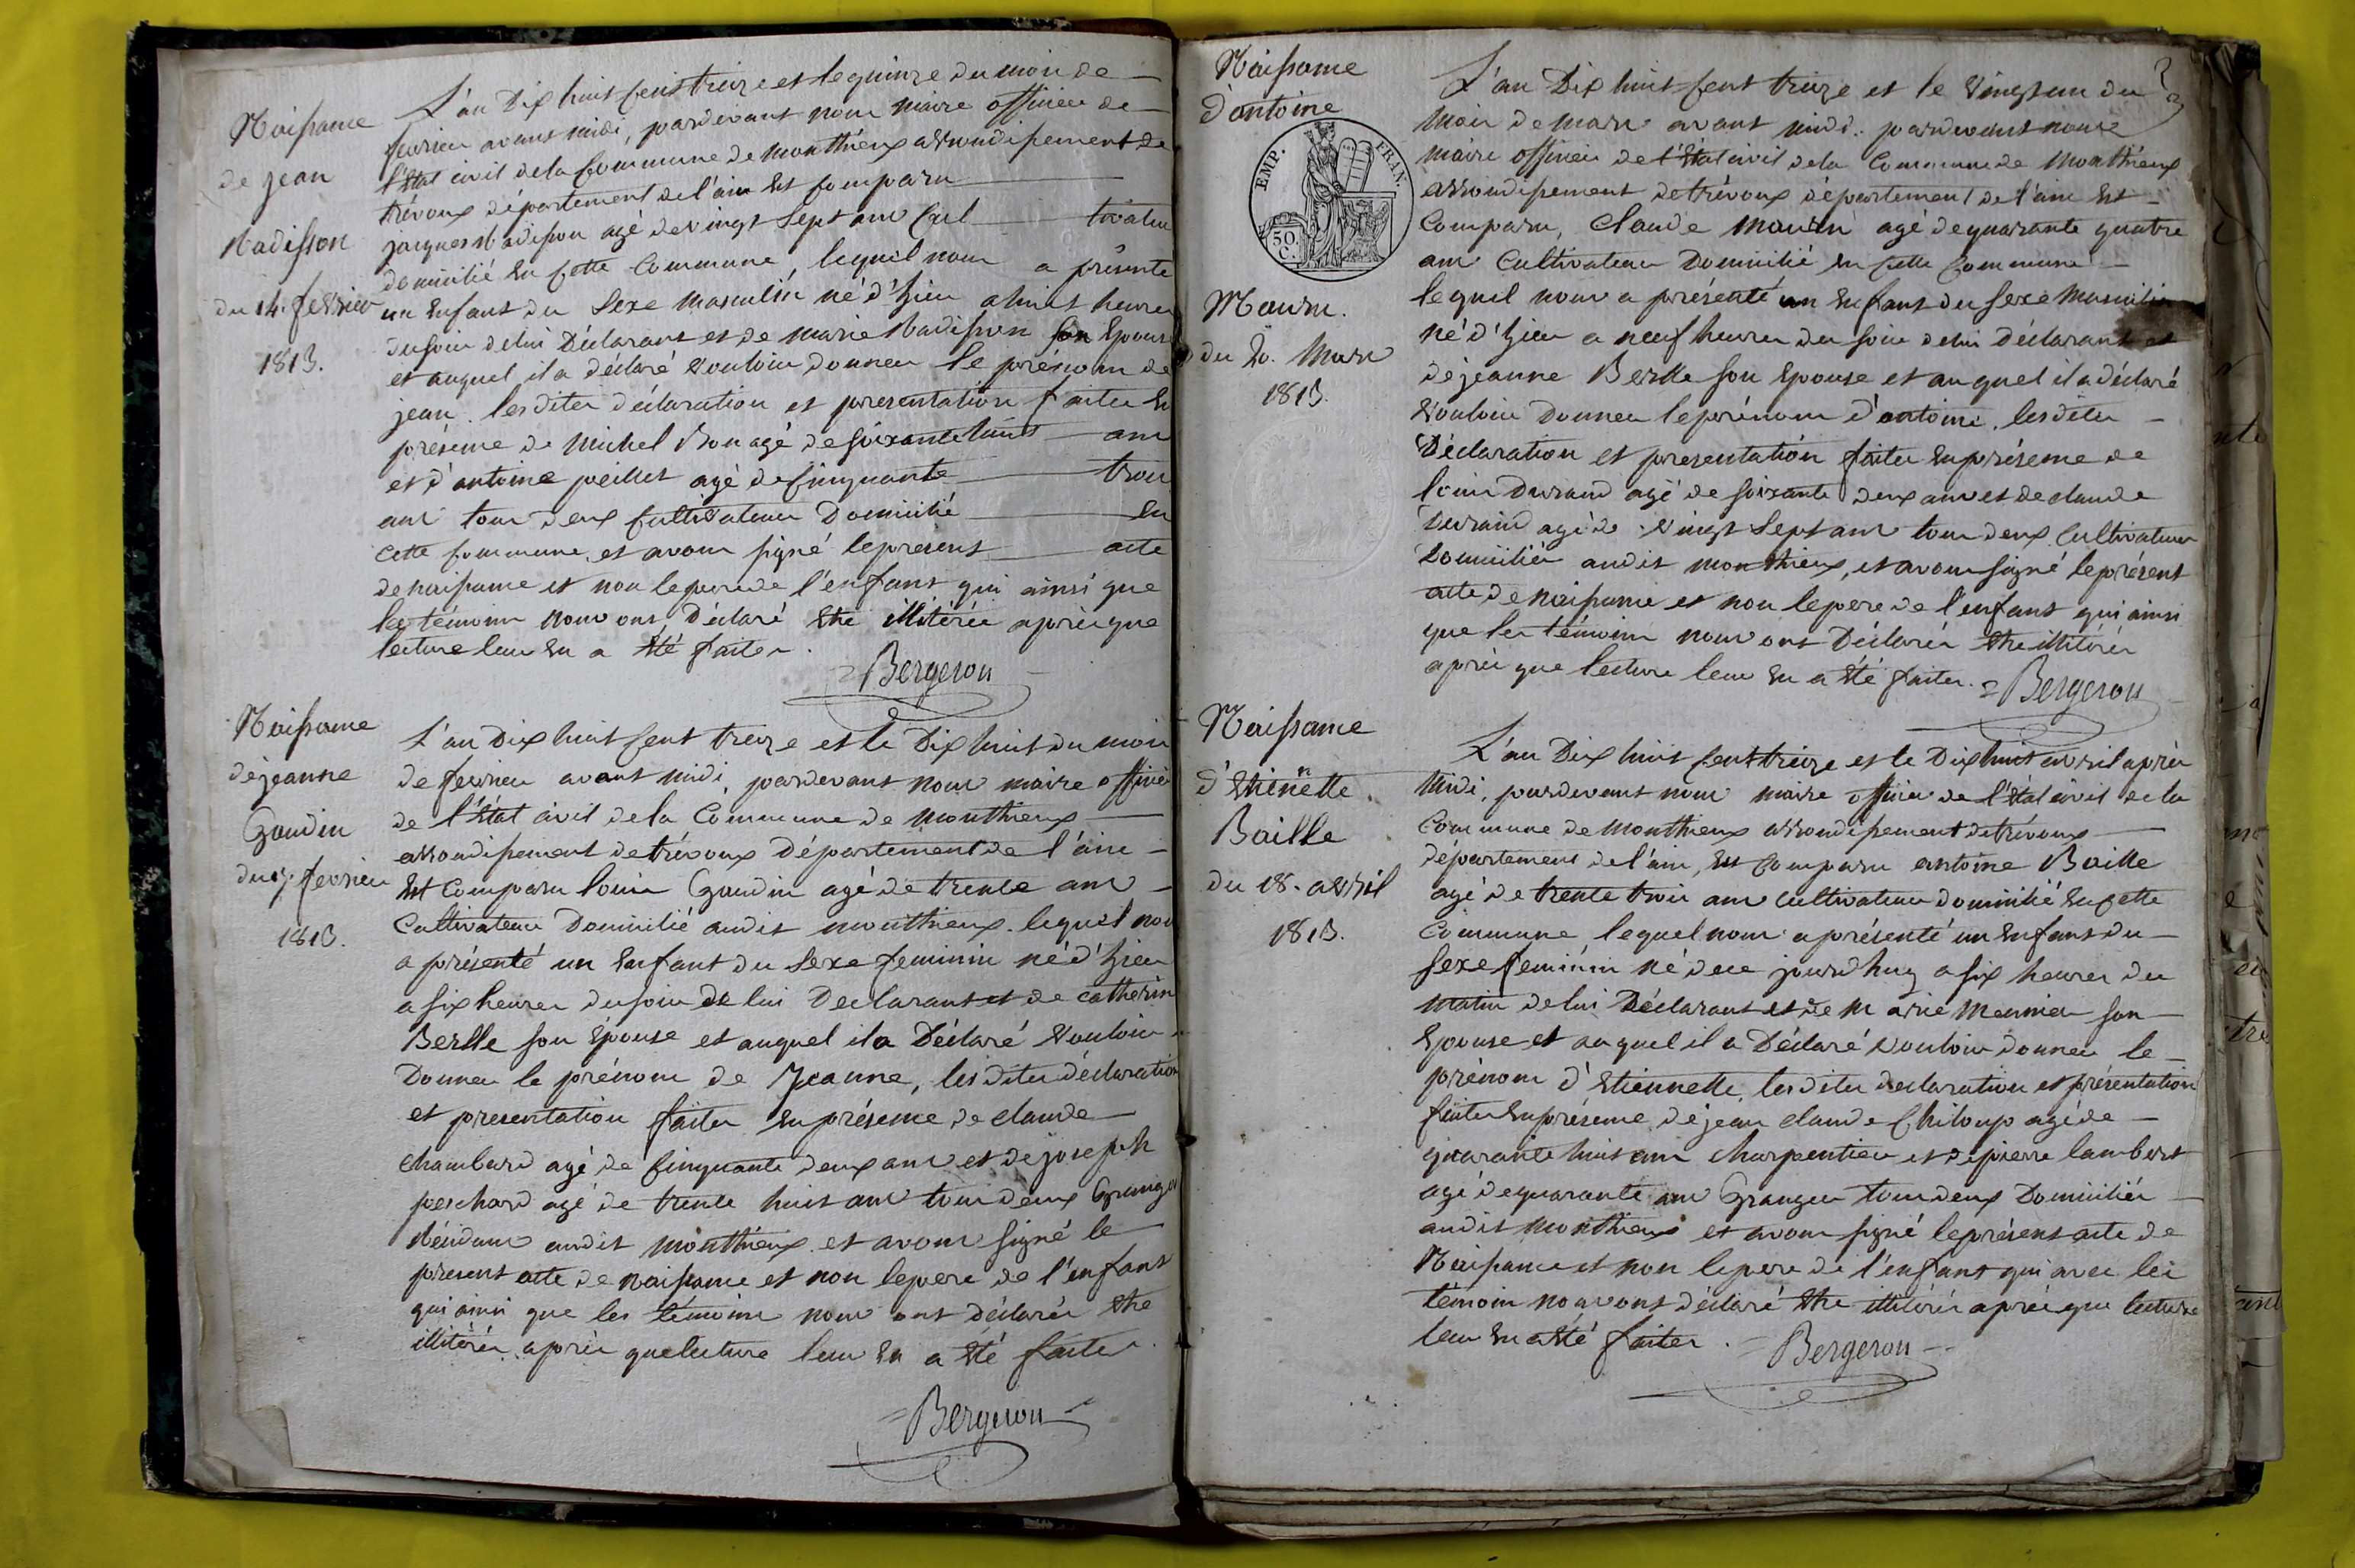 Naissance
de jean
Nadisson
du 14. fevrier
1813.
L'an Dix huit cent treize et le quinze du mois de
fevrier avant midi, pardevant nous maire officier de
l'Etat civil de la Commune de monthieux arrondissement de
trévoux département de l'ain Est comparu
jacques Nadisson agé de vingt sept ans Cul tivateur
domicilié en cette Commune lequel nous a présenté
un Enfant du Sexe masculin né d'hier a huit heures
du soir de lui Déclarant et de marie Nadisson son Epouse
et auquel il a déclaré vouloir donner le prénom de
jean. les dites déclaration et presentation faites En
présence de Michel Bon agé de soixante huit ans
et d'antoine peillet agé de cinquante trois
ans tous deux cultivateurs Domicilié En
cette commune, et avons signé le present acte
de naissance et non le pere de l'enfant qui ainsi que
les témoins nous ont Déclaré Etre illitérés après que
lecture leur En a Eté faites.
Bergeron
Naissance
de jeanne
Gaudin
du 17 fevrier
1813.
L'an Dix huit cent treize et le Dix huit du mois
de fevrier avant midi, pardevant nous maire officier
de l'Etat civil de la Commune de monthieux
arrondissement de trévoux Département de l'ain
Est Comparu louis Gaudin agé de trente ans
Cultivateur Domicilié audit monthieux. lequel nous
a présenté un Enfant du Sexe feminin né d'hier
a six heures du soir de lui Declarant et de catherine
Berlle son Epouse et auquel il a Déclaré vouloir
Donner le prénom de Jeanne, les dites déclaration
et presentation faites En présence de claude
chambard agé de cinquante deux ans et de joseph
perchard agé de trente huit ans tous deux Granger
Résidant audit monthieux et avons signé le
present acte de naissance et non le pere de l'enfant
qui ainsi que les témoins nous ont déclarés Etre
illitérés après que lecture leur En a Eté faites.
Bergeron
Naissance
d'antoine
EMP. FRAN.
50 C.
Mourn.
du 20. Mars
1813.
L'an Dix huit cent treize et le vingt un du
mois de mars avant midi. pardevant nous
maire officier de l'Etat civil de la Commune de Monthieux
arrondissement de trévoux département de l'ain Est
Comparu, Claude agé de quarante quatre
ans Cultivateur Domicilié En cette Commune
lequel nous a présenté un Enfant du sexe Masculin
né d'hier a neuf heures du soir de lui Déclarant et
de jeanne Berlle son Epouse et auquel il a déclaré
vouloir Donner le prénom d'antoine. les dites
Déclaration et presentation faites En présence de
louis Durand agé de soixante deux ans et de claude
Durand agé de vingt sept ans tous deux Cultivateurs
Domiciliés audit monthieux, et avons signé le présent
acte de Naissance et non le pere de l'enfant qui ainsi
que les témoins nous ont Déclarés Etre illitérés
après que lecture leur En a Eté faites. Bergeron
Naissance
d'Etiennette
Baille
du 18. avril
1813.
L'an Dix huit cent treize et le Dix huit avril après
Midi, pardevant nous maire officier de l'Etat civil de la
Commune de Monthieux arrondissement de trévoux
département de l'ain, Est Comparu antoine Baille
agé de trente trois ans cultivateur domicilié En cette
Commune, lequel nous a présenté un Enfant du
sexe feminin né de ce jourd'huy a six heures du
matin de lui Déclarant et de Marie Meunier son
Epouse et auquel il a Déclaré vouloir donner le
prénom d'Etiennette, les dites declaration et présentation
faites En présence de jean claude Chiloup agé de
quarante huit ans charpentier et de pierre lambert
agé de quarante ans Granger tous deux Domiciliés
audit Monthieux et avons signé le présent acte de
Naissance et non le pere de l'enfant qui avec les
témoin nous ont déclaré Etre illitérés après que lecture
leur En a Eté faites. Bergeron